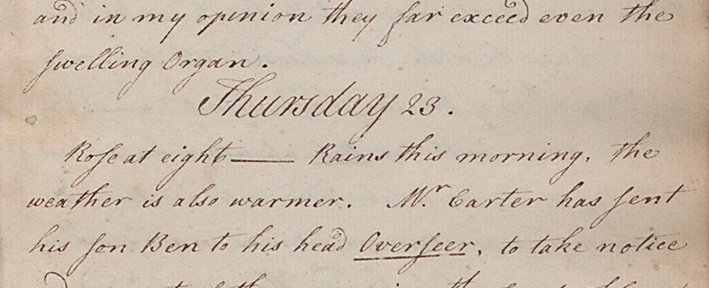 and in my opinion they far exceed even the
swelling Organ.
Thursday 23.
Rose at eight — Rains this morning, the
weather is also warmer. Mr. Carter has sent
his son Ben to his head Overseer, to take notice